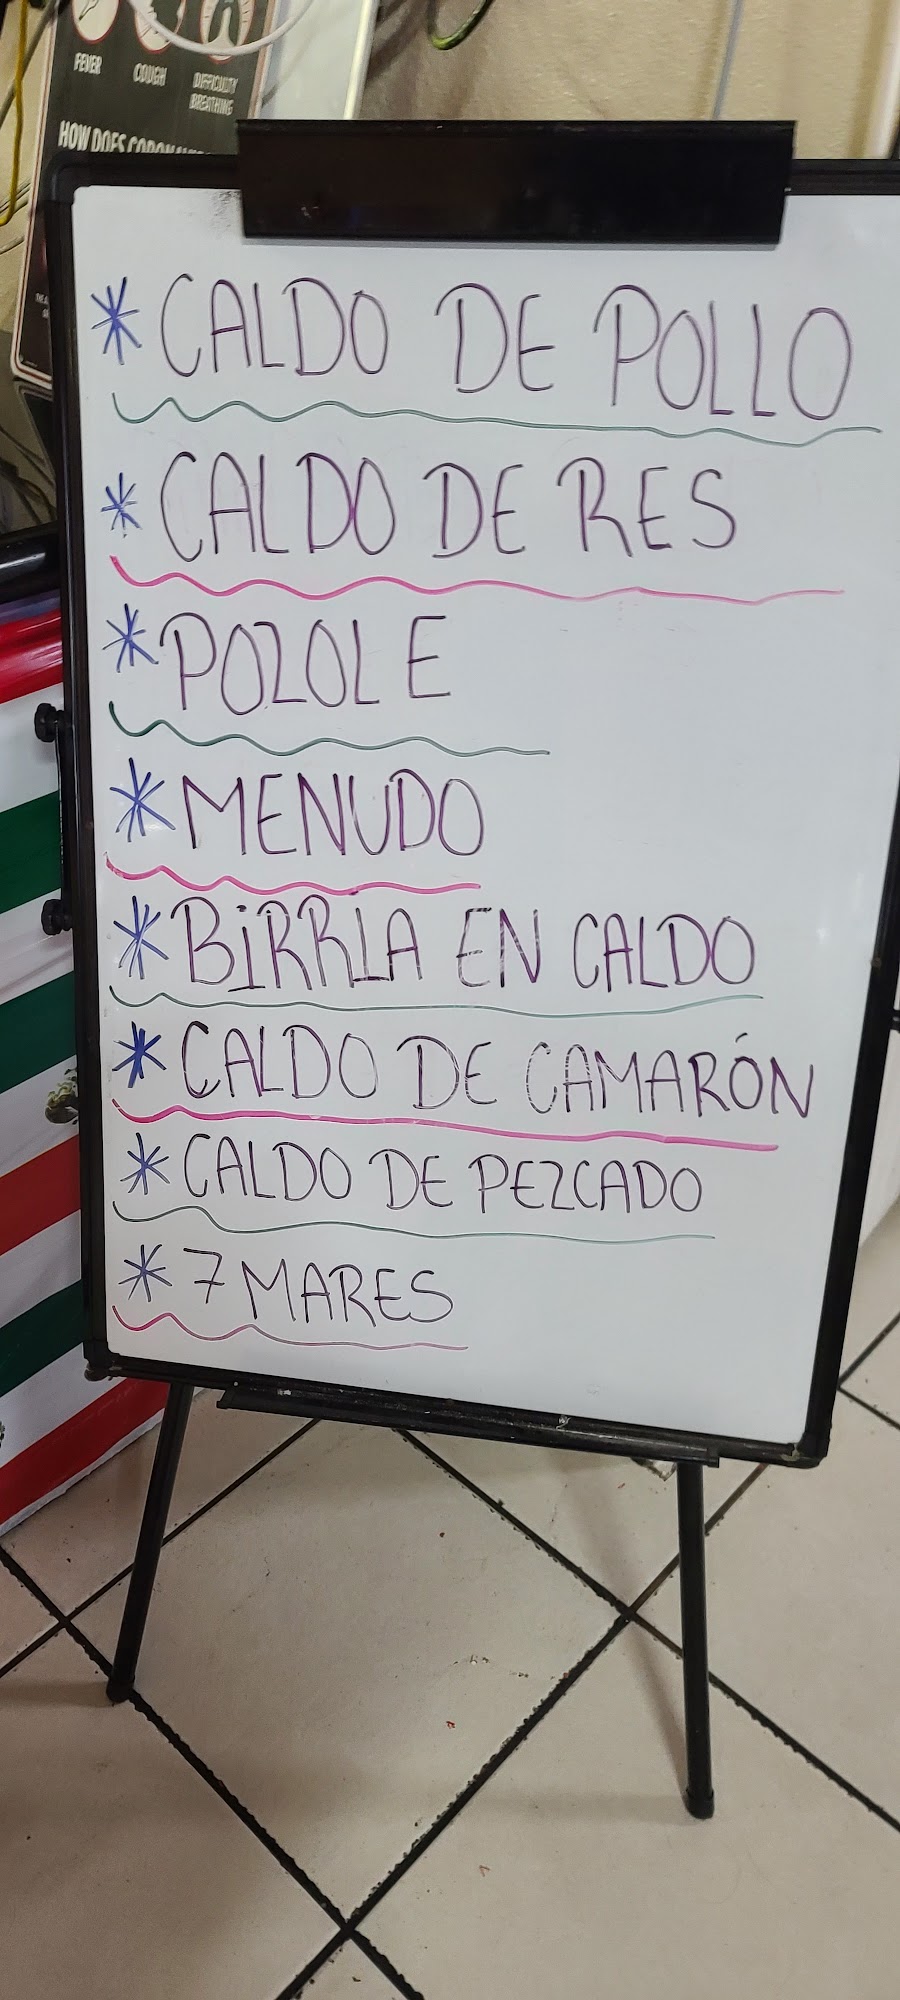 FEVER
COUGH
DIFFICULTY
BREATHING
HOW DOES CORONAVIRUS
* CALDO DE POLLO
* CALDO DE RES
* POZOLE
* MENUDO
* BIRRIA EN CALDO
* CALDO DE CAMARÓN
* CALDO DE PEZCADO
* 7 MARES